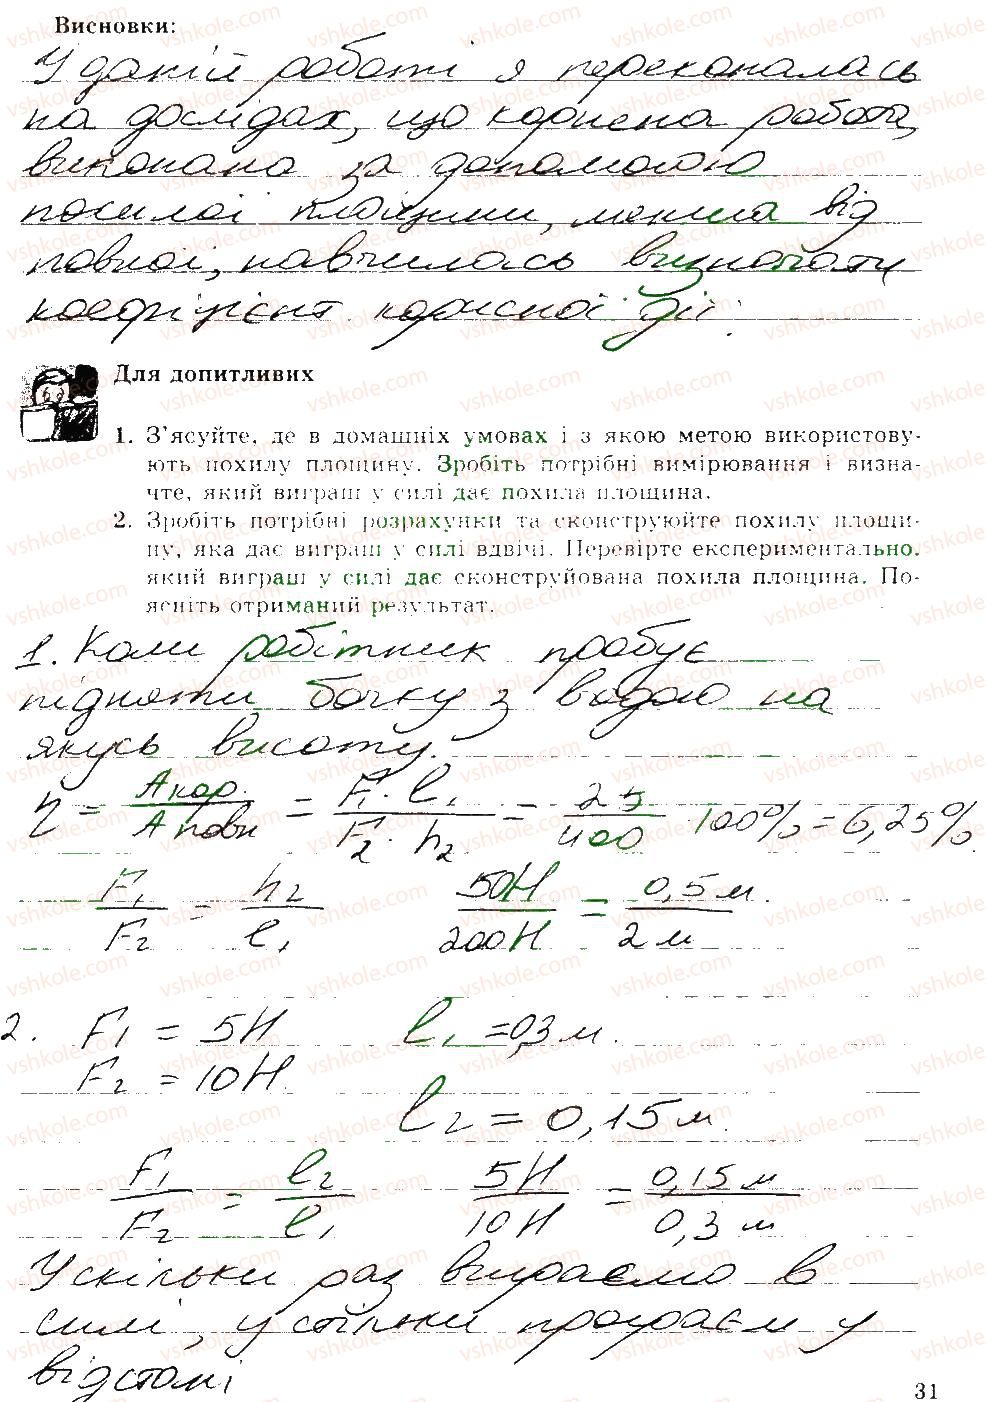 Висновки:
У даній роботі я переконалась
на дослідах, що корисна робота,
виконана за допомогою
похилої площини, менша від
повної, навчилась визначати
коефіцієнт корисної дії.
Для допитливих
1. З’ясуйте, де в домашніх умовах і з якою метою використову-
ють похилу площину. Зробіть потрібні вимірювання і визна-
чте, який виграш у силі дає похила площина.
2. Зробіть потрібні розрахунки та сконструюйте похилу площи-
ну, яка дає виграш у силі вдвічі. Перевірте експериментально,
який виграш у силі дає сконструйована похила площина. По-
ясніть отриманий результат.
1. Коли робітник пробує
підняти бочку з водою на
якусь висоту.
η = Aкор. / Aповн = F₁ · l₁ / F₂ · h₂ = 25 / 400 · 100% = 6,25%
F₁ / F₂ = h₂ / l₁   50Н / 200Н = 0,5 м. / 2 м
2. F₁ = 5Н   l₁ = 0,3 м.
F₂ = 10Н.
l₂ = 0,15 м.
F₁ / F₂ = l₂ / l₁   5Н / 10Н = 0,15 м / 0,3 м
У скільки раз виграємо в
силі, у стільки програєм у
відстані
31